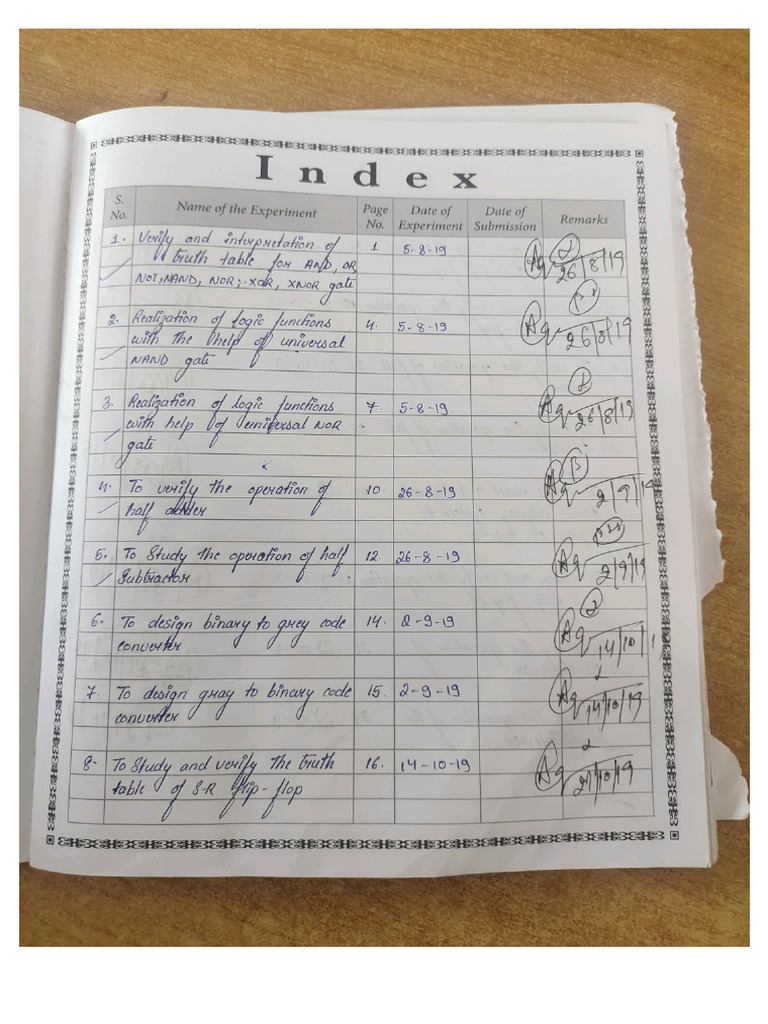 Index
S. No. Name of the Experiment Page No. Date of Experiment Date of Submission Remarks
1. Verify and interpretation of 1 5-8-19
truth table for AND, OR, 26/8/19
NOT, NAND, NOR, XOR, XNOR gate
2. Realization of logic functions 4. 5-8-19
with the help of universal 26/8/19
NAND gate
3. Realization of logic functions 7 5-8-19
with help of universal NOR 26/8/19
gate
4. To verify the operation of 10 26-8-19 2/9/19
half adder
5. To Study the operation of half 12. 26-8-19
Subtractor 2/9/19
6- To design binary to grey code 14. 2-9-19
converter 14/10/1
7. To design gray to binary code 15. 2-9-19 14/10/19
converter
8- To Study and verify the truth 16. 14-10-19
table of S-R flip-flop 21/10/19